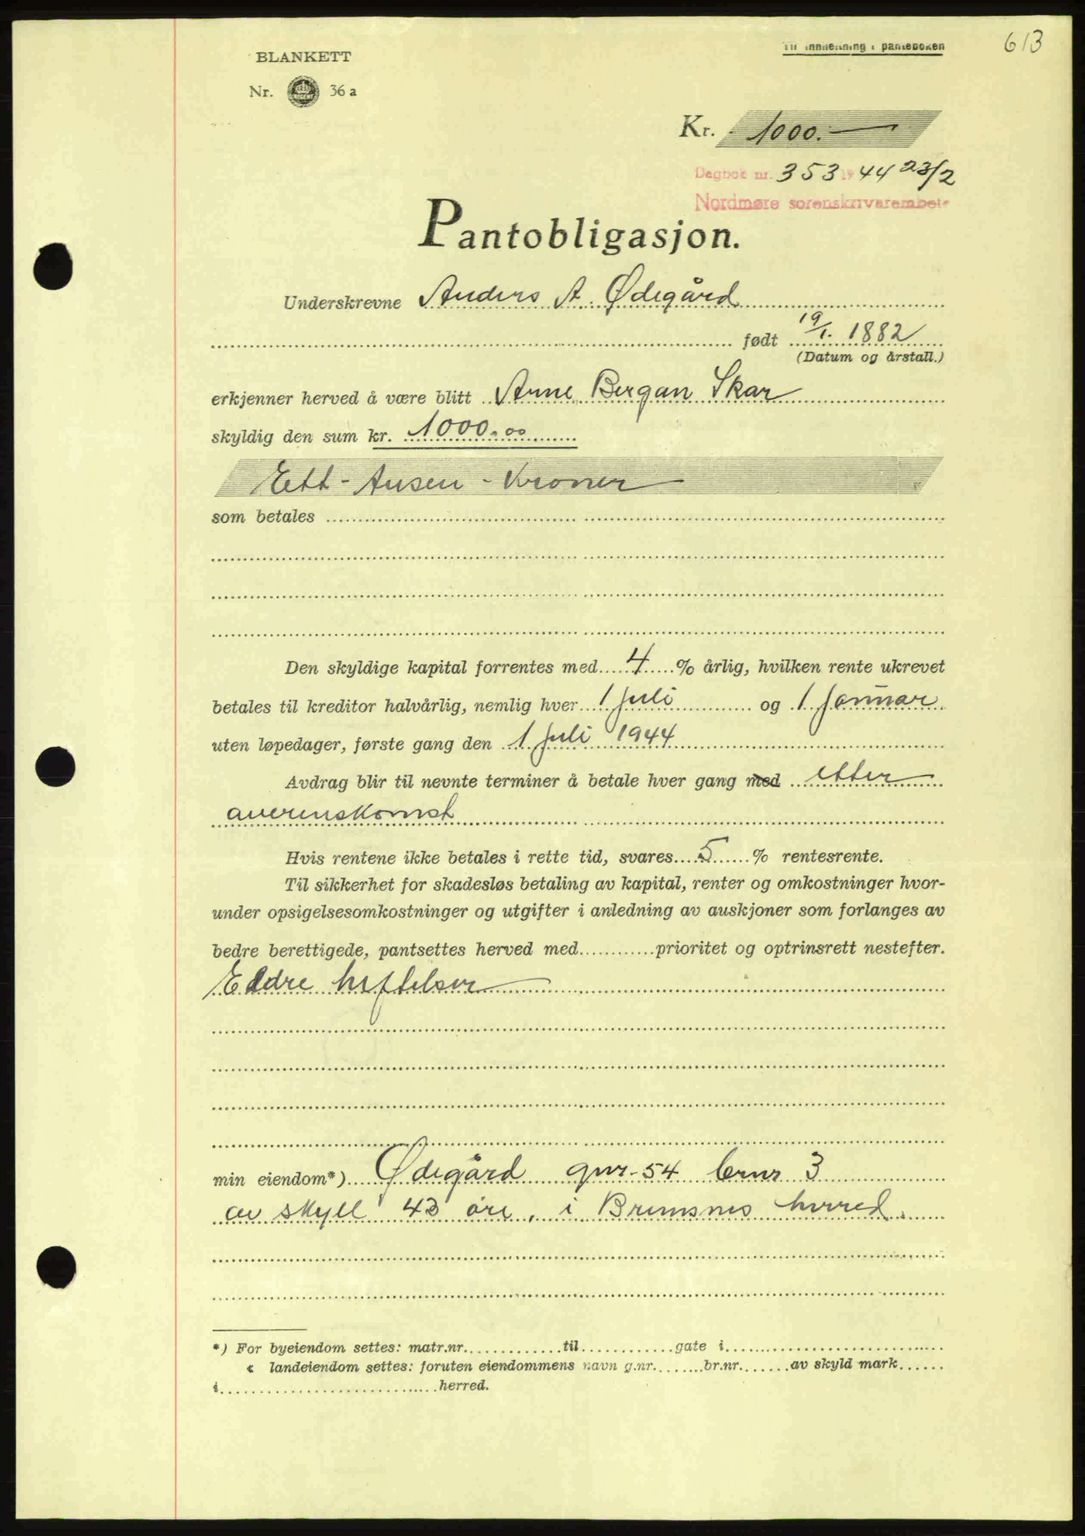 613
Til innheftning i panteboken
BLANKETT
Nr. 36 a
Kr. 1000.—
Dagbok nr. 353 1944 23/2
Nordmøre sorenskriverembete
Pantobligasjon.
Underskrevne Anders A. Ødegård
født 19/1. 1882
(Datum og årstall.)
erkjenner herved å være blitt Arne Bergan Skar
skyldig den sum kr. 1000.00
Ett - Tusen - Kroner
som betales
Den skyldige kapital forrentes med 4 % årlig, hvilken rente ukrevet
betales til kreditor halvårlig, nemlig hver 1 juli og 1 januar
uten løpedager, første gang den 1 juli 1944
Avdrag blir til nevnte terminer å betale hver gang med etter
averenskomst
Hvis rentene ikke betales i rette tid, svares 5 % rentesrente.
Til sikkerhet for skadesløs betaling av kapital, renter og omkostninger hvor-
under opsigelsesomkostninger og utgifter i anledning av auksjoner som forlanges av
bedre berettigede, pantsettes herved med prioritet og optrinsrett nestefter.
Eldre heftelser
min eiendom*) Ødegård gnr. 54 brnr 3
av skyll 43 øre, i Bremsnes herred.
*) For byeiendom settes: matr.nr. til gate i
« landeiendom settes: foruten eiendommens navn g.nr. br.nr. av skyld mark
i herred.